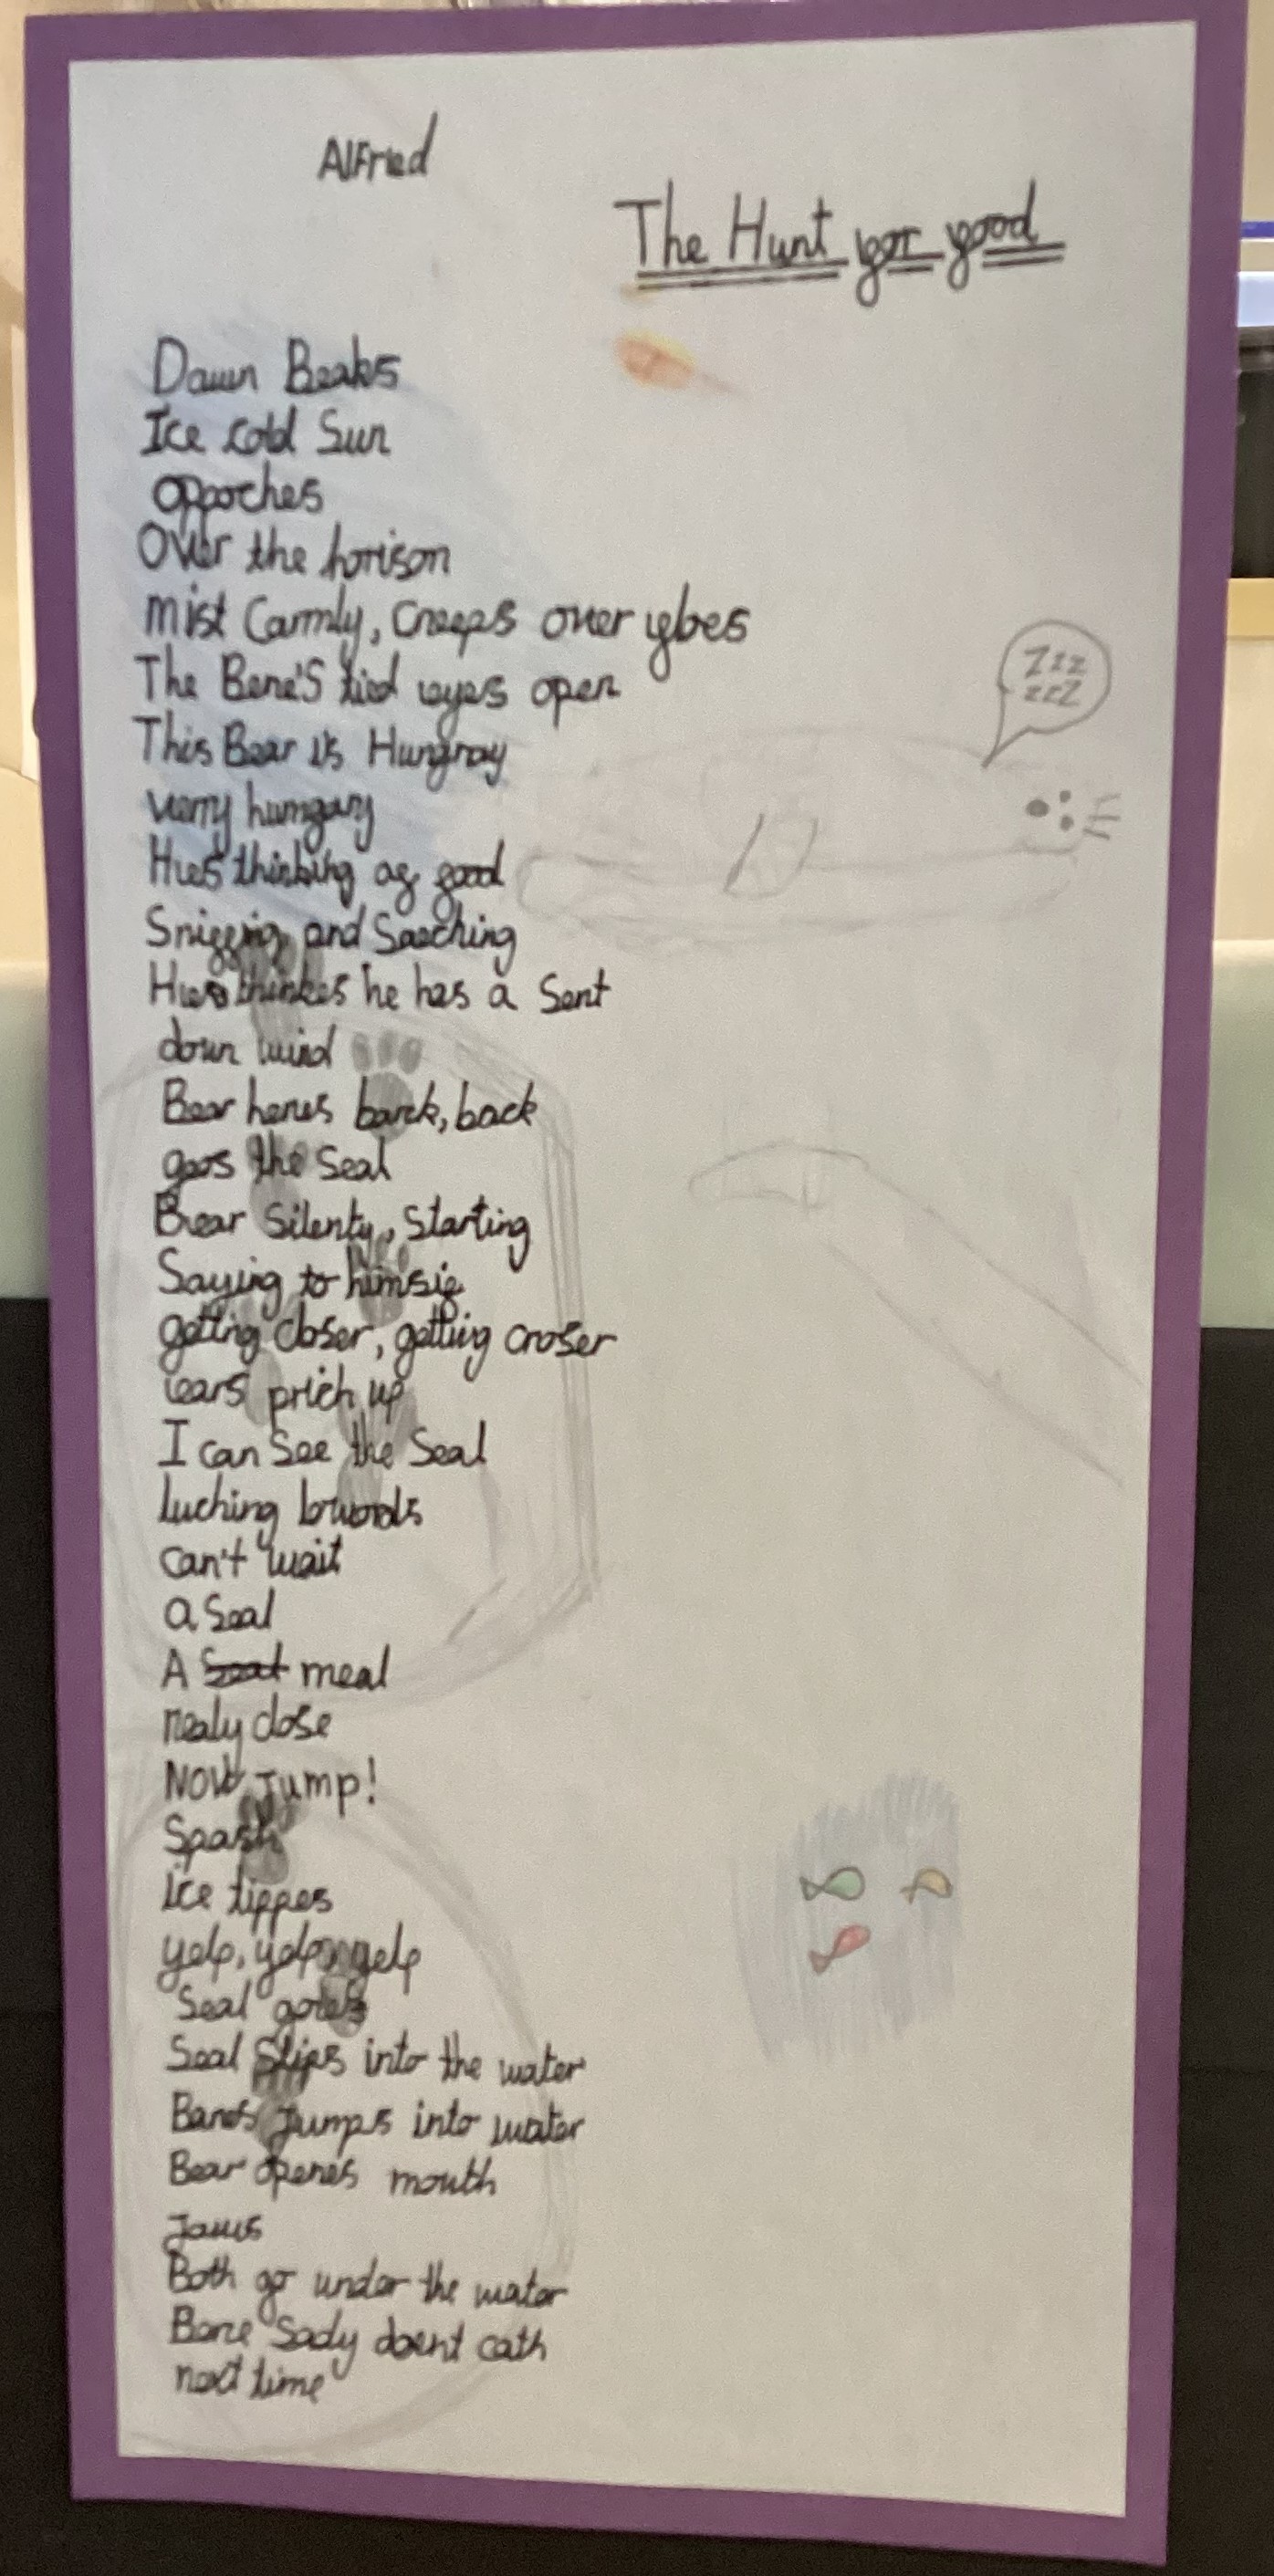 Alfried
The Hunt for food
Dawn Beaks
Ice cold Sun
oppoches
Over the horison
mist Carmly, Creeps over
The Bene's tied eyes open
This Bear is Hungray
verry hungary
Hes thinking of food
Sniffing and Saeching
Hes thinkes he has a Sent
down wind
Bear heres barck, back
goes the Seal
Brear Silenty, Starting
Saying to himsif
getting closer, getting croser
ears prich up
I can See the Seal
luching
can't wait
a Seal
A Seal meal
nealy close
NOW Jump!
Spash
ice tippes
yelp, yelp, yelp
Seal
Seal Slips into the water
Jumps into water
Bear openes mouth
Jaws
Both go under the water
Bare Sady doent cath
next time
Zzz
zzZ